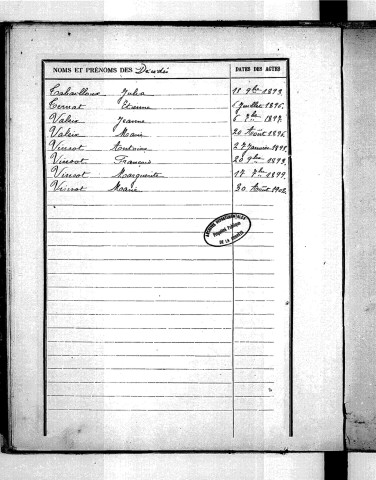 NOMS ET PRÉNOMS DES Décédés DATES DES ACTES
Julia 11 9bre 1893
Ternat Etienne 6 Juillet 1896
Valeix Jeanne 6 7bre 1897
Valeix Marie 20 Août 1896
Vincot Antoine 27 Janvier
Vincot François 26 9bre 1893
Vincot Marguerite 17 7bre 1899
Vincot Marie 30 Août 1902
ARCHIVES DÉPARTEMENTALES
Propriété Publique
DE LA